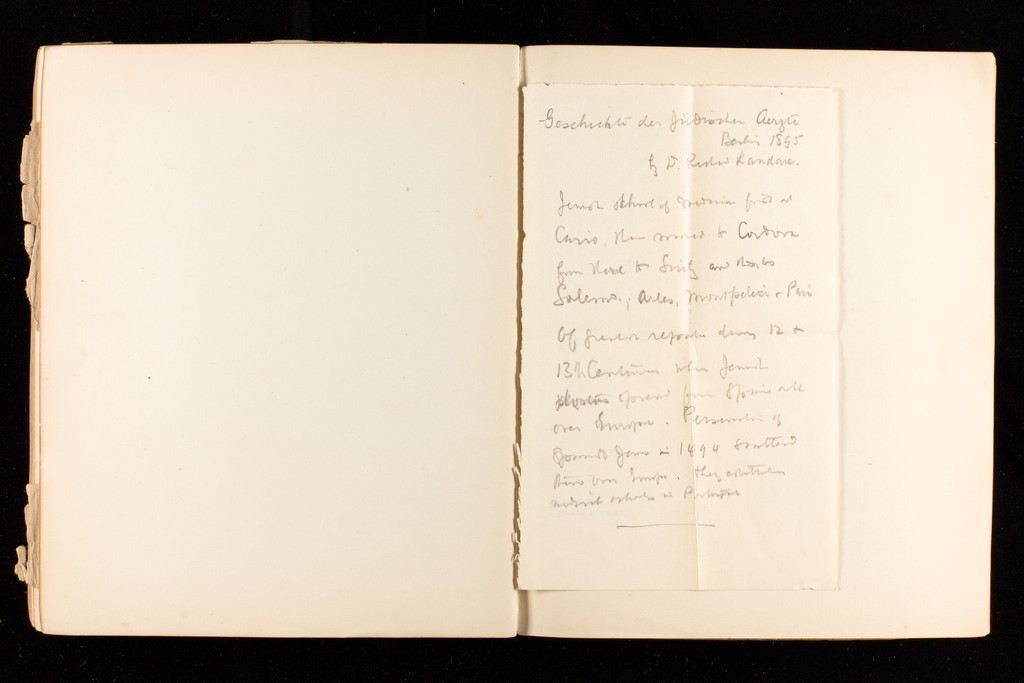 Geschichte der Jüdischer Aerzte
Berlin 1895
by Dr. Richard Landau.
Jewish school of medicine first at
Cairo, then moved to Cordova
from there to Sicily and thence to
Salerno, Arles, Montpelier + Paris
Of greatest repute during 12 +
13th Centuries when Jewish
doctors spread from Spain all
over Europe. Persecution of
Spanish Jews in 1494 scattered
them over Europe. They established
medical schools in